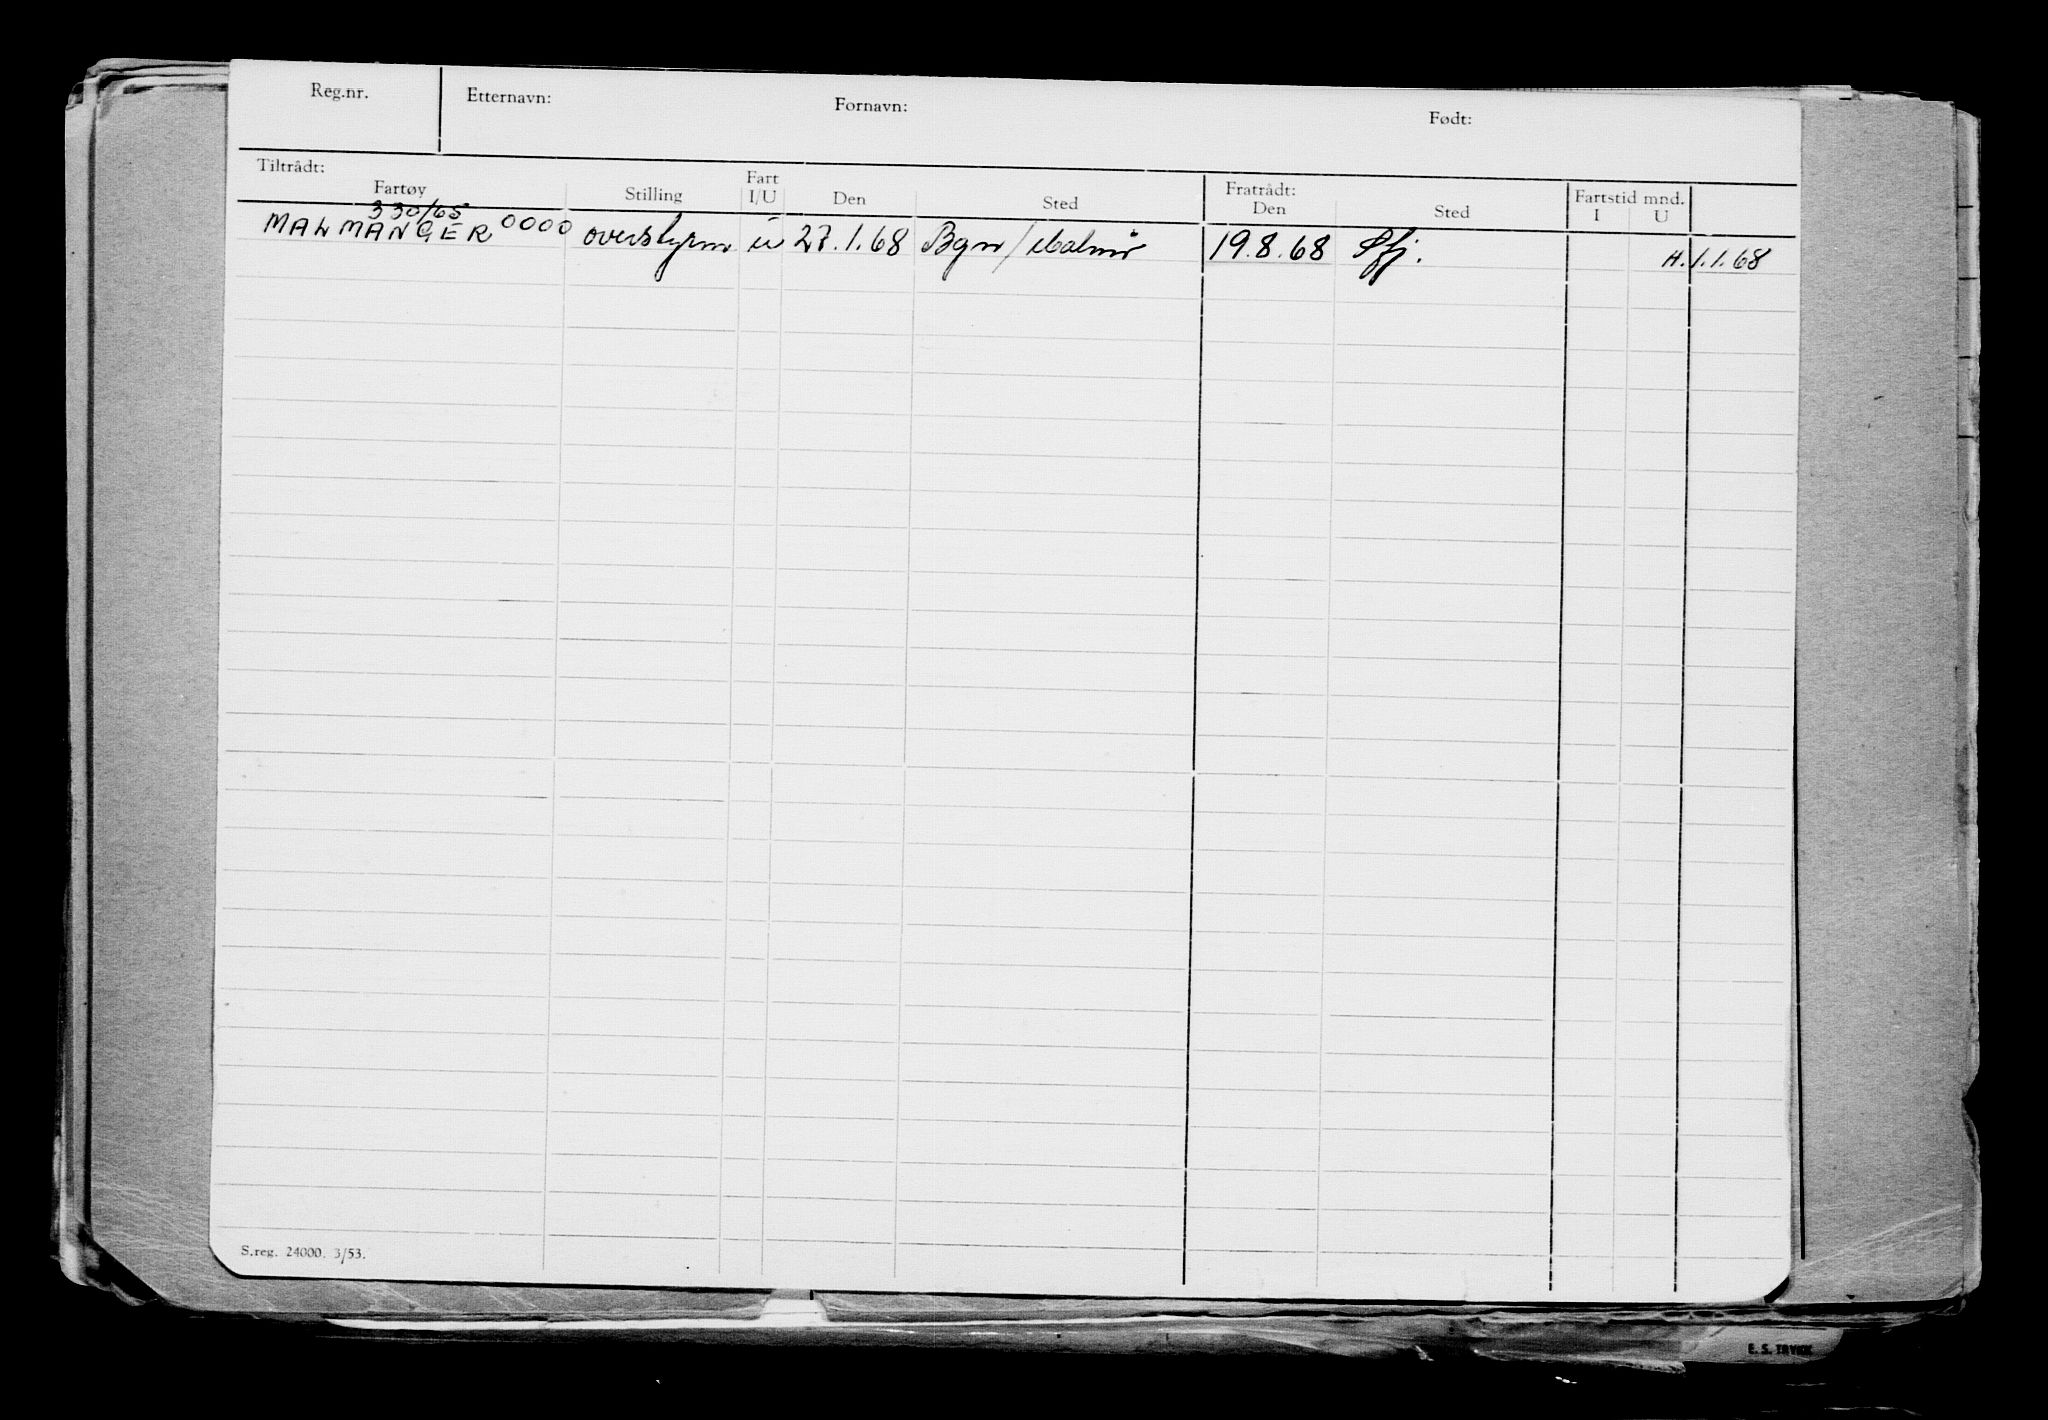 Reg.nr. Etternavn: Fornavn: Født:
Tiltrådt: Fratrådt: Fartstid mnd.
Fartøy Stilling Fart I/U Den Sted Den Sted I U
330/65
MALMANGER 0000 overstyrm u 27.1.68 Bgn/Malmö 19.8.68 Sfj. H.1.1.68
S.reg. 24000. 3/53.
E. S. TRYKK